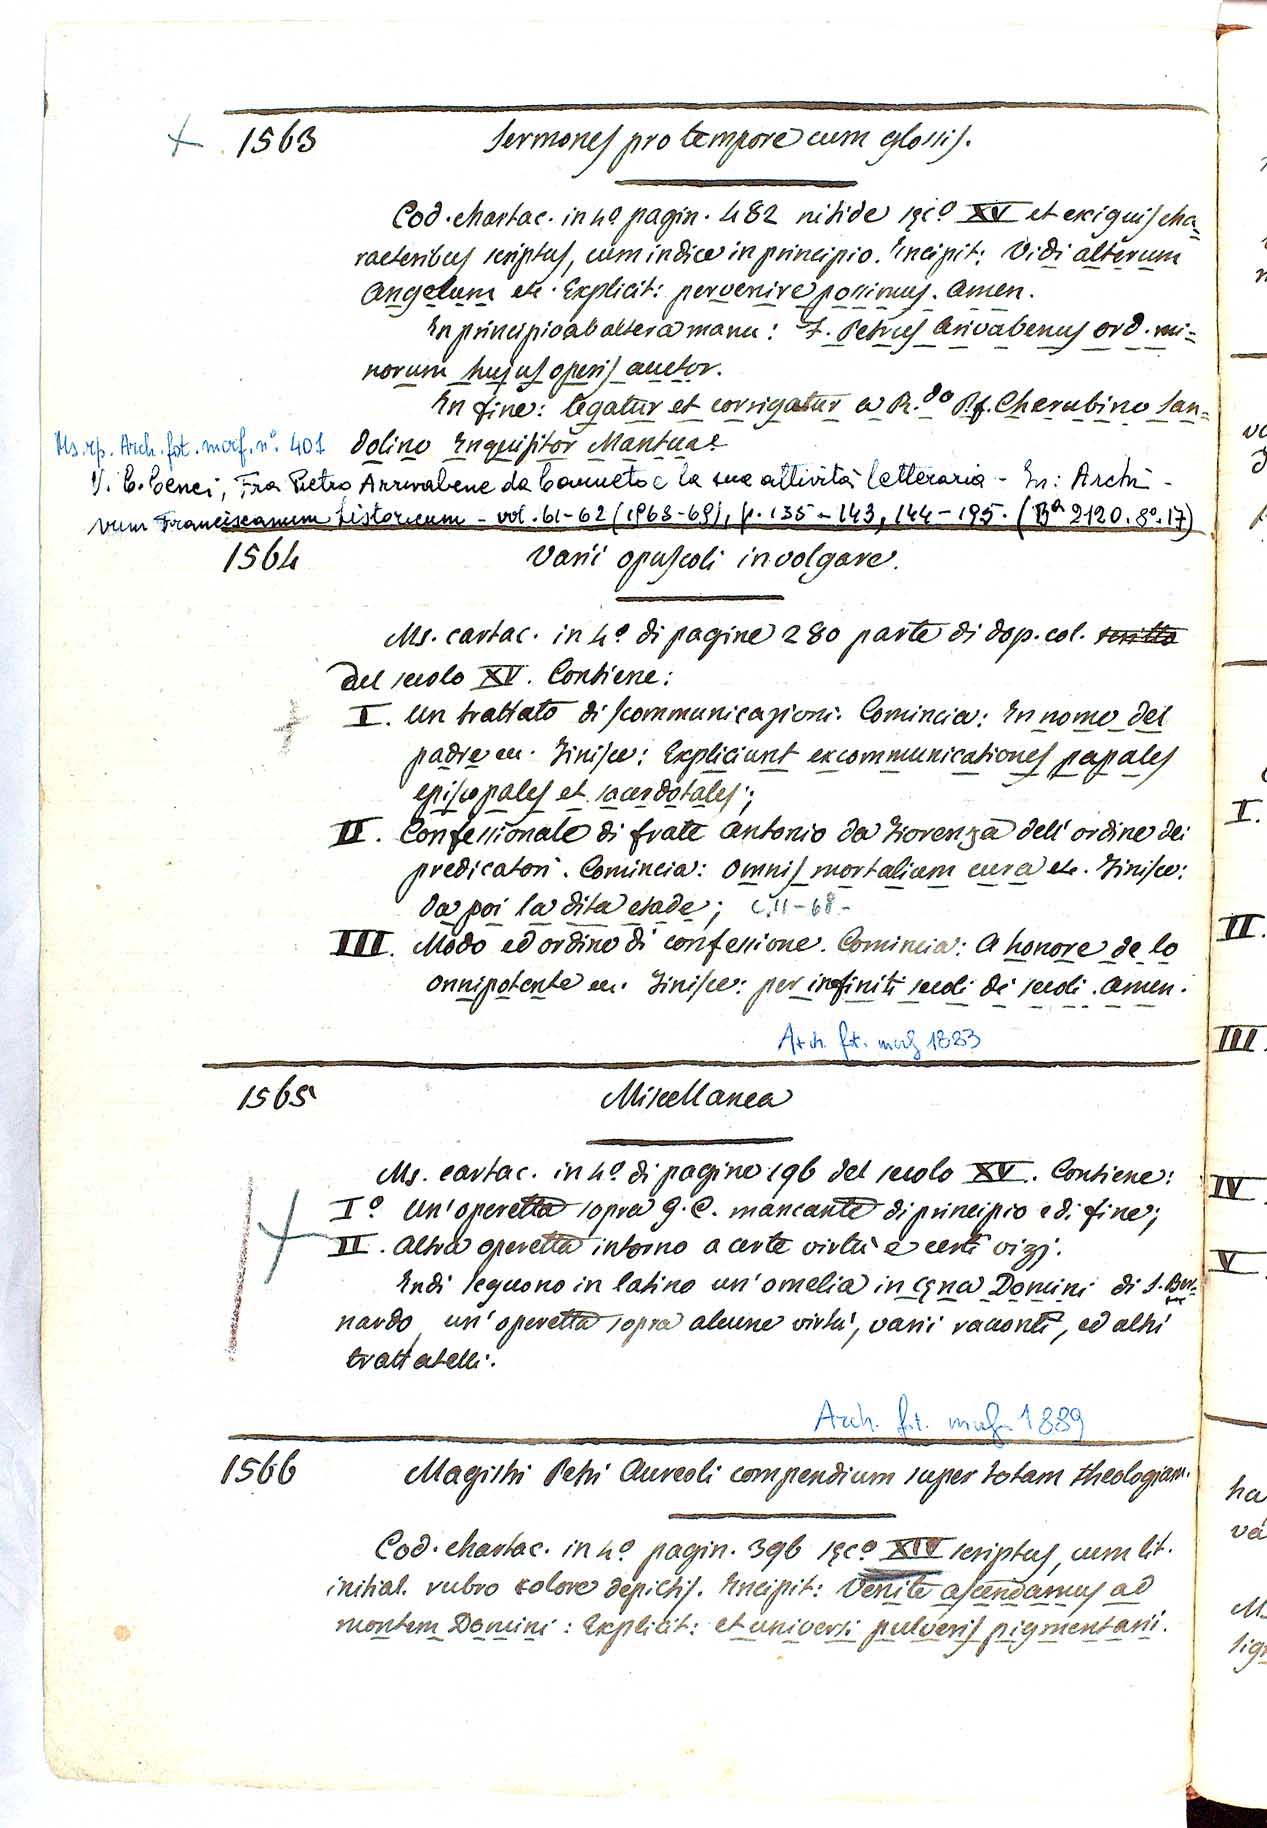 1563 Sermones pro tempore cum glossis.
Cod. chartac. in 4º pagin. 482 nitide sęcº XV et exiguis cha=
racteribus scriptus, cum indice in principio. Incipit: Vidi alterum
Angelum etc. Explicit: pervenire possimus. Amen.
In principio ab altera manu: F. Petrus Arivabenus ord. mi=
norum hujus operis auctor.
In fine: legatur et corrigatur a R.do P.f. Cherubino San=
dolino Inquisitor Mantuae
Ms. rip. Arch. fot. mcrf. nº. 401
V. C. Cenci, Fra Pietro Arrivabene da Canneto e la sua attività letteraria - In: Archi-
vum Franciscanum historicum - vol. 61-62 (1968-69), p. 135-143, 144-195. (Bª 2120. 8º. 17)
1564 Varii opuscoli in volgare.
Ms. cartac. in 4º di pagine 280 parte di dop. col. scritto
del secolo XV. Contiene:
I. Un trattato di scommunicazioni. Comincia: In nome del
padre ec. Finisce: Expliciunt excommunicationes papales
episcopales et sacerdotales;
II. Confessionale di frate Antonio da Fiorenza dell'ordine dei
predicatori. Comincia: Omnis mortalium cura etc. Finisce:
da poi la dita etade; c. 11-68-
III. Modo ed ordine di confessione. Comincia: A honore de lo
onnipotente ec. Finisce: per infiniti secoli di secoli. Amen.
Arch. fot. mcrf 1883
1565 Miscellanea
Ms. cartac. in 4º di pagine 196 del secolo XV. Contiene:
Iº Un'operetta sopra G. C. mancante di principio e di fine;
II. Altra operetta intorno a certe virtù e certi vizj.
Indi seguono in latino un'omelia in Cęna Domini di S. Ber=
nardo, un'operetta sopra alcune virtù, varii racconti, ed altri
trattatelli.
Arch. fot. mcrf. 1889
1566 Magistri Petri Aureoli compendium super totam theologiam.
Cod. chartac. in 4º pagin. 396 sęcº XIV scriptus, cum lit.
initial. rubro colore depictis. Incipit: Venite ascendamus ad
montem Domini: Explicit: et universi pulveris pigmentarii.